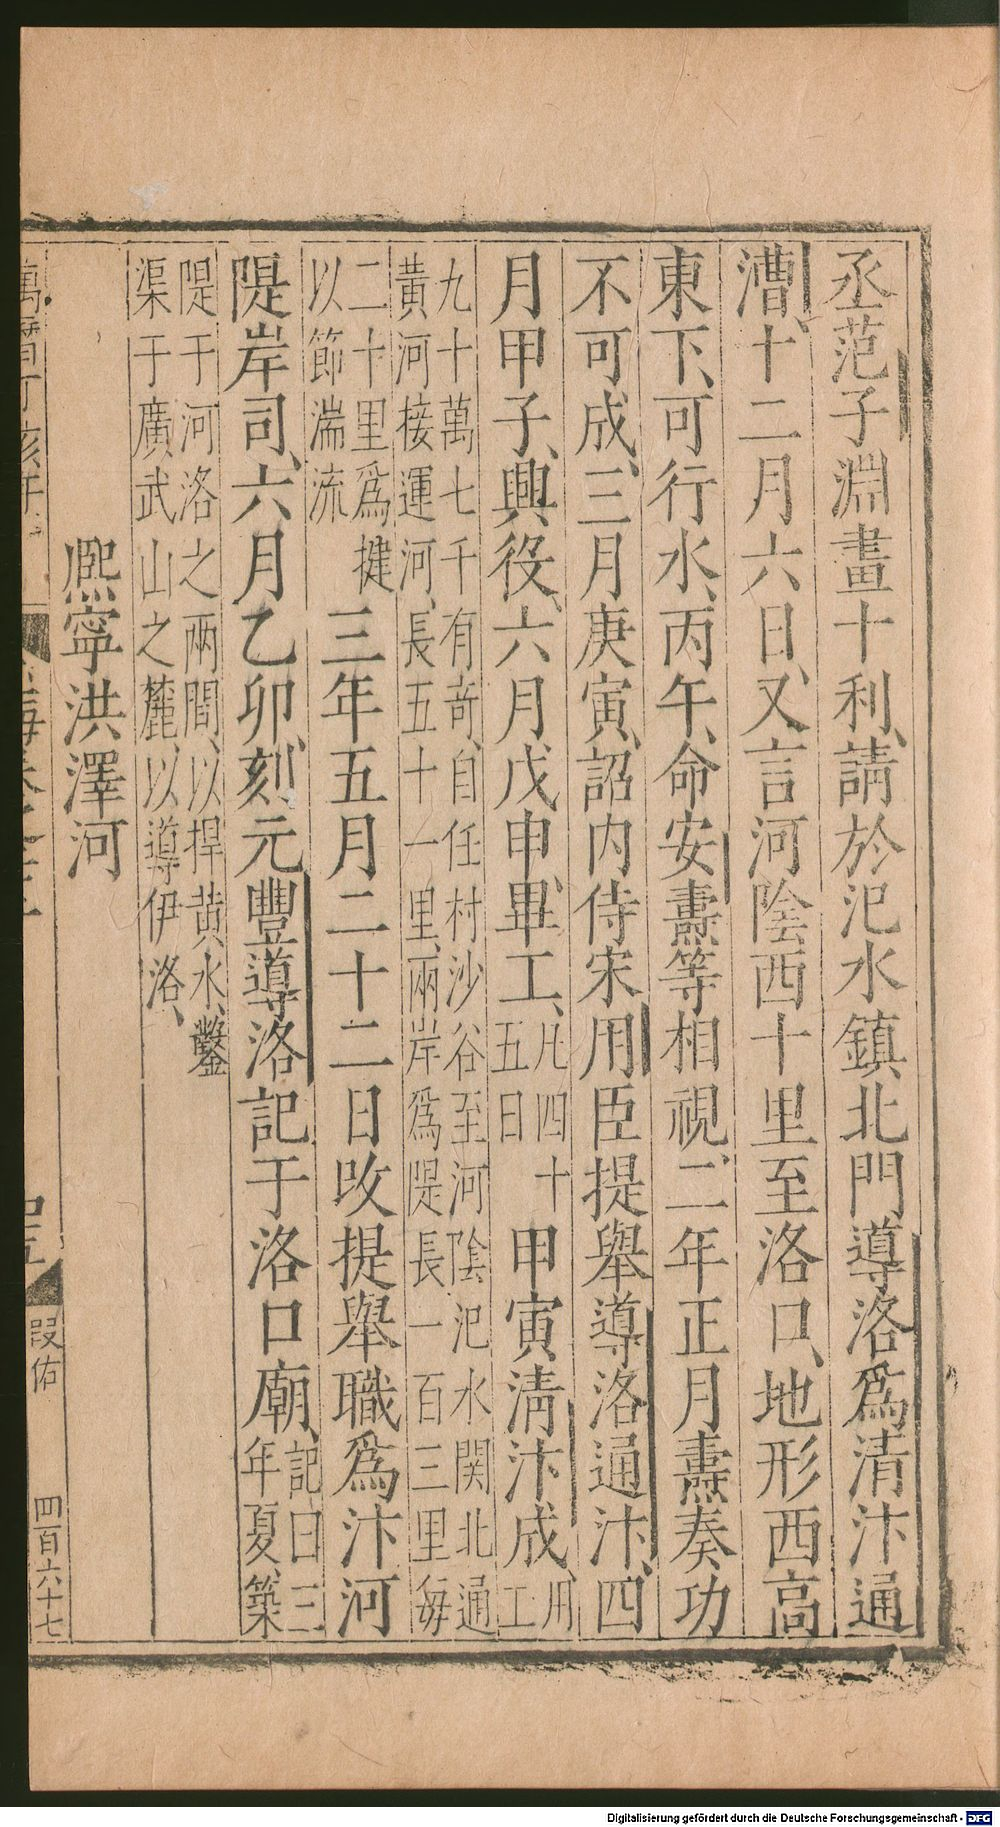 丞范子淵畫十利、請於汜水鎮北門、導洛爲清汴通
漕、十二月六日、又言河陰西十里至洛口、地形西高
東下、可行水、丙午、命安燾等相視、二年正月燾奏、功
不可成、三月庚寅、詔内侍宋用臣提舉導洛通汴、四
月甲子、興役、六月戊申、畢工、凡四十
五日
甲寅清汴成、用
工
九十萬七千有奇、自任村沙谷至河陰汜水関北通
黄河接運河、長五十一里、兩岸爲隄長一百三里每
二十里爲揵
以節湍流
三年五月二十二日改提舉職爲汴河
隄岸司、六月乙卯、刻元豐導洛記于洛口廟、記曰三
年夏、築
隄于河洛之兩間、以捍黄水、鑿
渠于廣武山之麓、以導伊洛、
熈寧洪澤河
萬曆丁亥年
玉海卷之
段佑
四百六十七
Digitalisierung gefördert durch die Deutsche Forschungsgemeinschaft - DFG